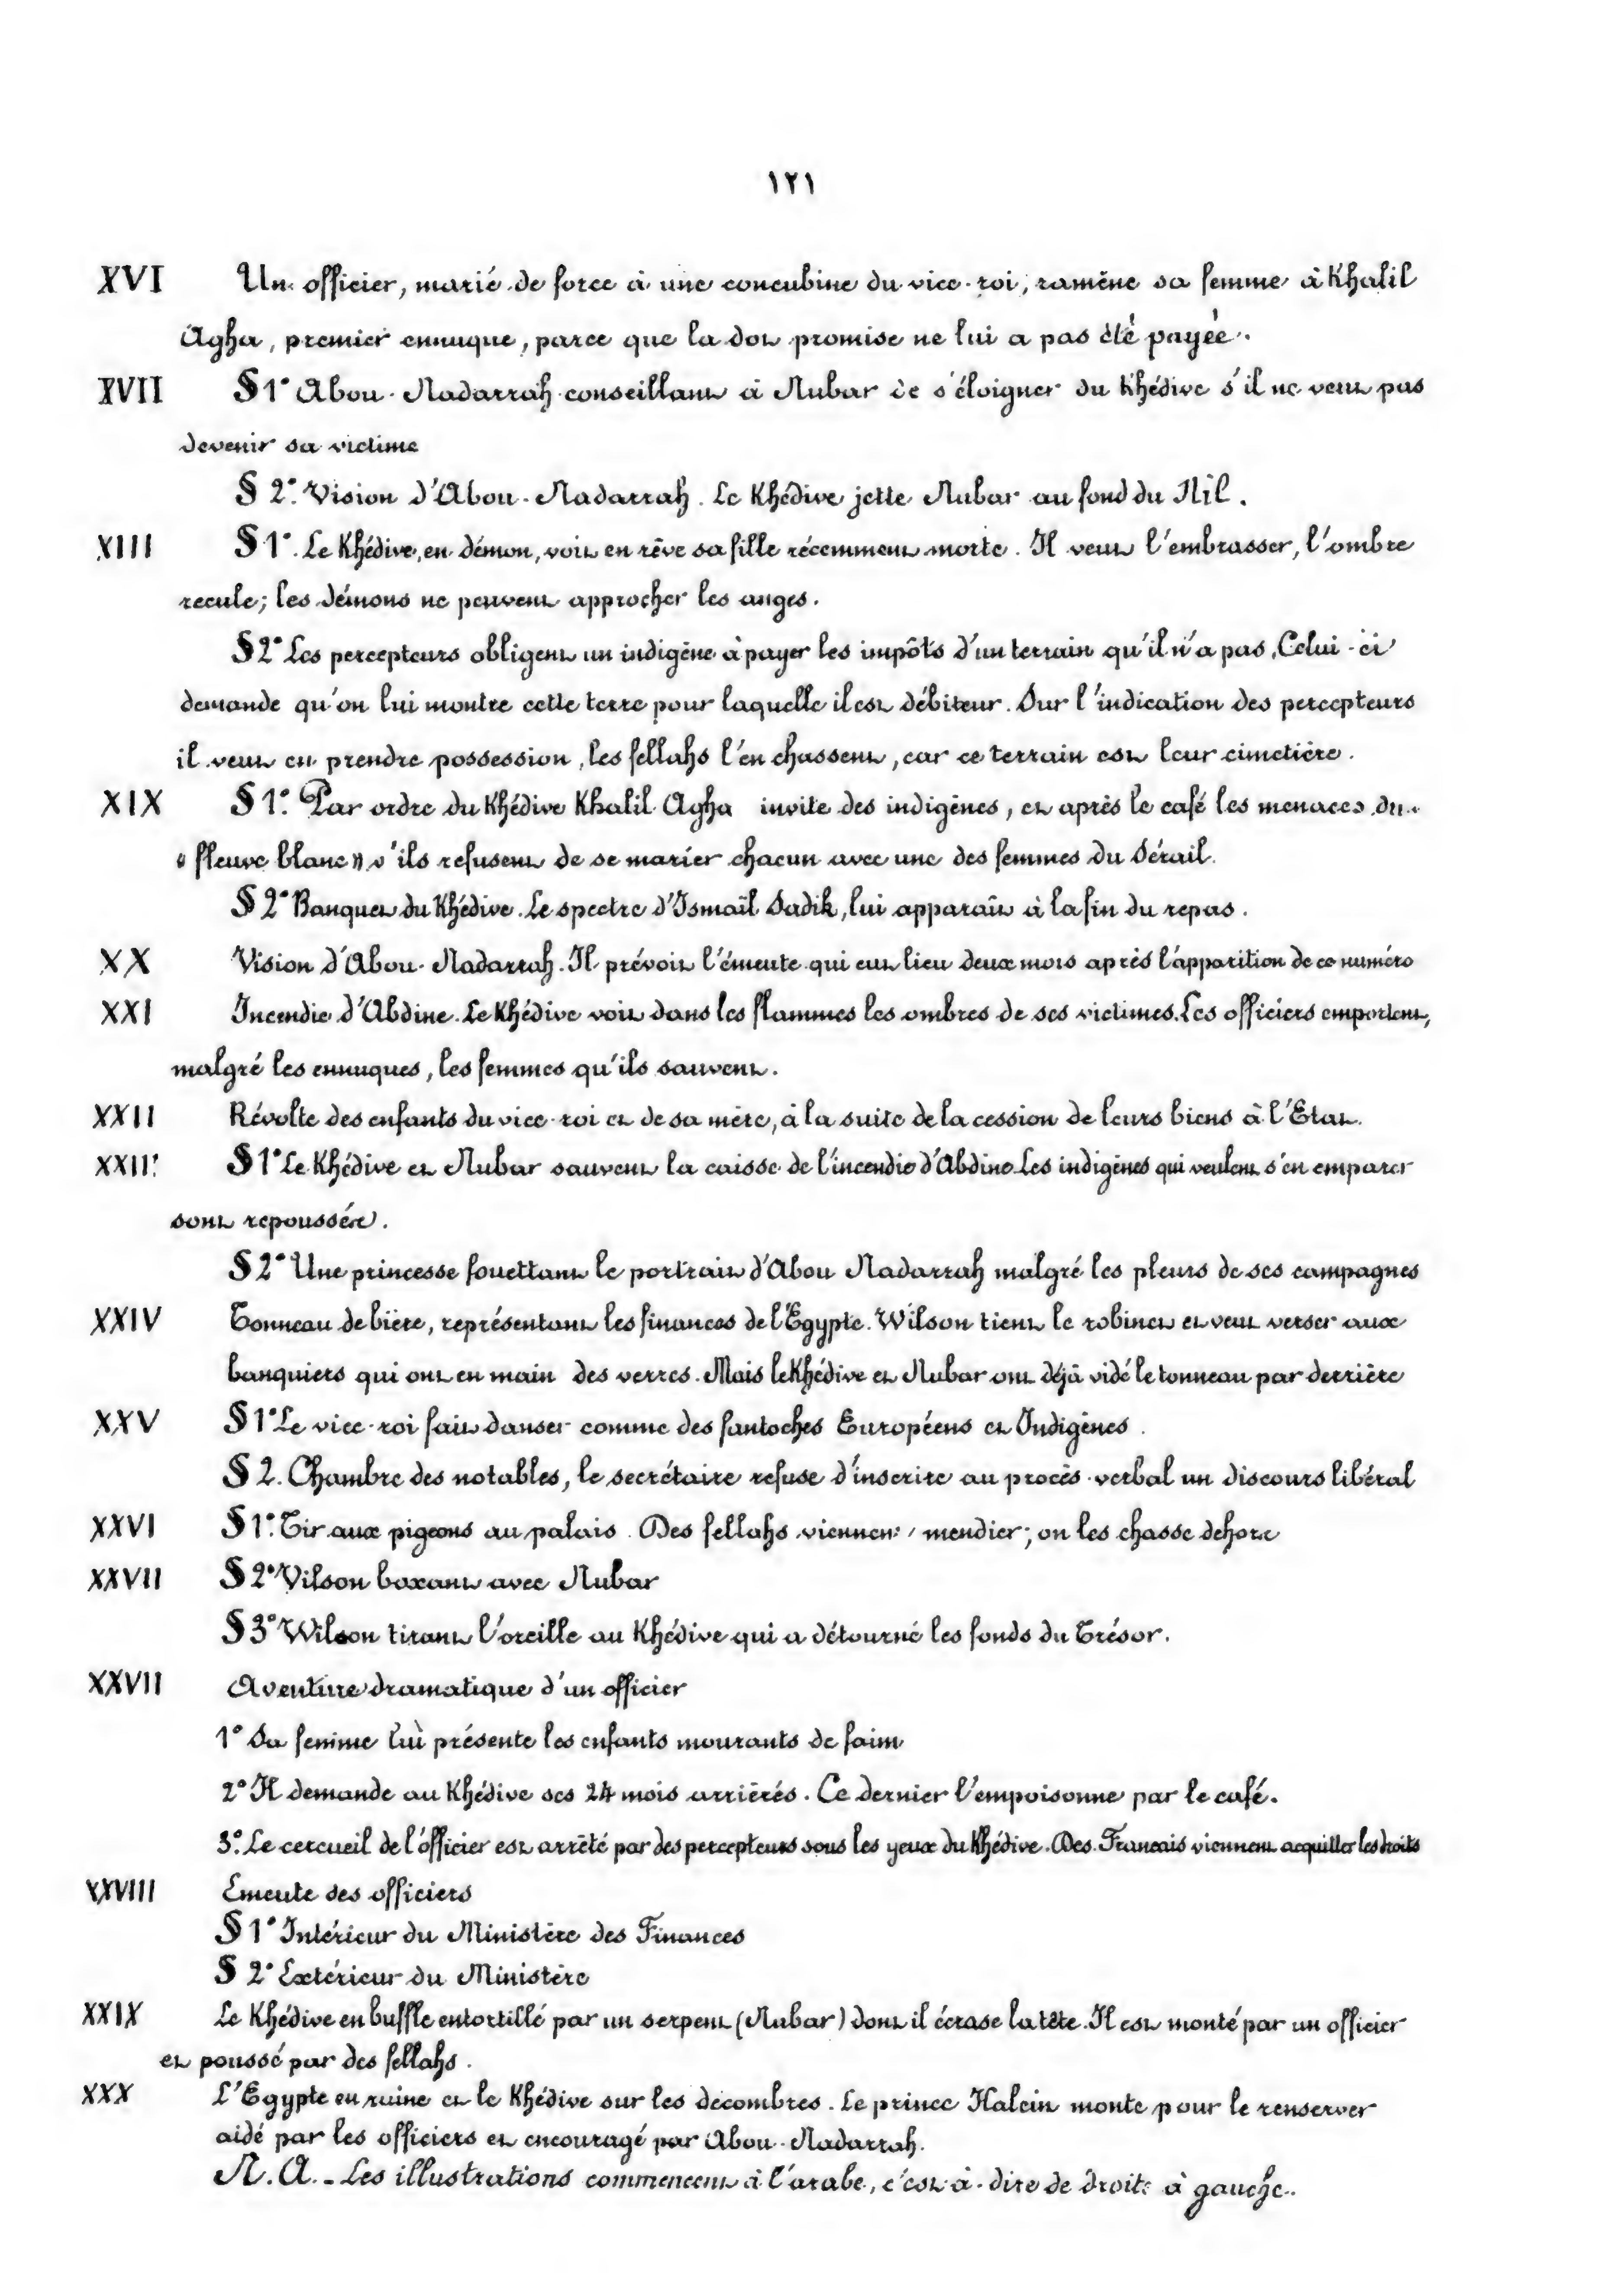 ١٢١
XVI Un officier, marié de force à une concubine du vice-roi, ramène sa femme à Khalil
Agha, premier ennuque, parce que la dot promise ne lui a pas été payée.
XVII § 1° Abou-Nadarrah conseillant à Nubar de s'éloigner du Khédive s'il ne veut pas
devenir sa victime
§ 2° Vision d'Abou-Nadarrah. Le Khédive jette Nubar au fond du Nil.
XIII § 1°. Le Khédive, en démon, voit en rêve sa fille récemment morte. Il veut l'embrasser, l'ombre
recule; les démons ne peuvent approcher les anges.
§ 2° Les percepteurs obligent un indigène à payer les impôts d'un terrain qu'il n'a pas. Celui-ci
demande qu'on lui montre cette terre pour laquelle il est débiteur. Sur l'indication des percepteurs
il veut en prendre possession, les fellahs l'en chassent, car ce terrain est leur cimetière.
XIX § 1° Par ordre du Khédive Khalil Agha invite des indigènes, et après le café les menaces du
« fleuve blanc » s'ils refusent de se marier chacun avec une des femmes du Sérail.
§ 2° Banquet du Khédive. Le spectre d'Ismaïl Sadik, lui apparaît à la fin du repas.
XX Vision d'Abou-Nadarrah. Il prévoit l'émeute qui eut lieu deux mois après l'apparition de ce numéro
XXI Incendie d'Abdine. Le Khédive voit dans les flammes les ombres de ses victimes. Les officiers emportent,
malgré les ennuques, les femmes qu'ils sauvent.
XXII Révolte des enfants du vice-roi et de sa mère, à la suite de la cession de leurs biens à l'Etat.
XXIII § 1° Le Khédive et Nubar sauvent la caisse de l'incendie d'Abdine. Les indigènes qui veulent s'en emparer
sont repoussés.
§ 2° Une princesse fouettant le portrait d'Abou Nadarrah malgré les pleurs de ses campagnes
XXIV Tonneau de bière, représentant les finances de l'Egypte. Wilson tient le robinet et veut verser aux
banquiers qui ont en main des verres. Mais le Khédive et Nubar ont déjà vidé le tonneau par derrière
XXV § 1° Le vice-roi fait danser comme des fantoches Européens et Indigènes.
§ 2. Chambre des notables, le secrétaire refuse d'inscrire au procès-verbal un discours libéral
XXVI § 1° Tir aux pigeons au palais. Des fellahs viennent mendier; on les chasse dehors
XXVII § 2° Vilson boxant avec Nubar
§ 3° Wilson tirant l'oreille au Khédive qui a détourné les fonds du Trésor.
XXVII Aventure dramatique d'un officier
1° Sa femme lui présente les enfants mourants de faim
2° Il demande au Khédive ses 24 mois arriérés. Ce dernier l'empoisonne par le café.
3° Le cercueil de l'officier est arrêté par des percepteurs sous les yeux du Khédive. Des Francais viennent acquitter les droits
XXVIII Emeute des officiers
§ 1° Intérieur du Ministère des Finances
§ 2° Extérieur du Ministère
XXIX Le Khédive en buffle entortillé par un serpent (Nubar) dont il écrase la tête. Il est monté par un officier
et poussé par des fellahs.
XXX L'Egypte en ruine et le Khédive sur les décombres. Le prince Halein monte pour le renserver
aidé par les officiers et encouragé par Abou-Nadarrah.
N. A. - Les illustrations commencent à l'arabe, c'est-à-dire de droite à gauche.